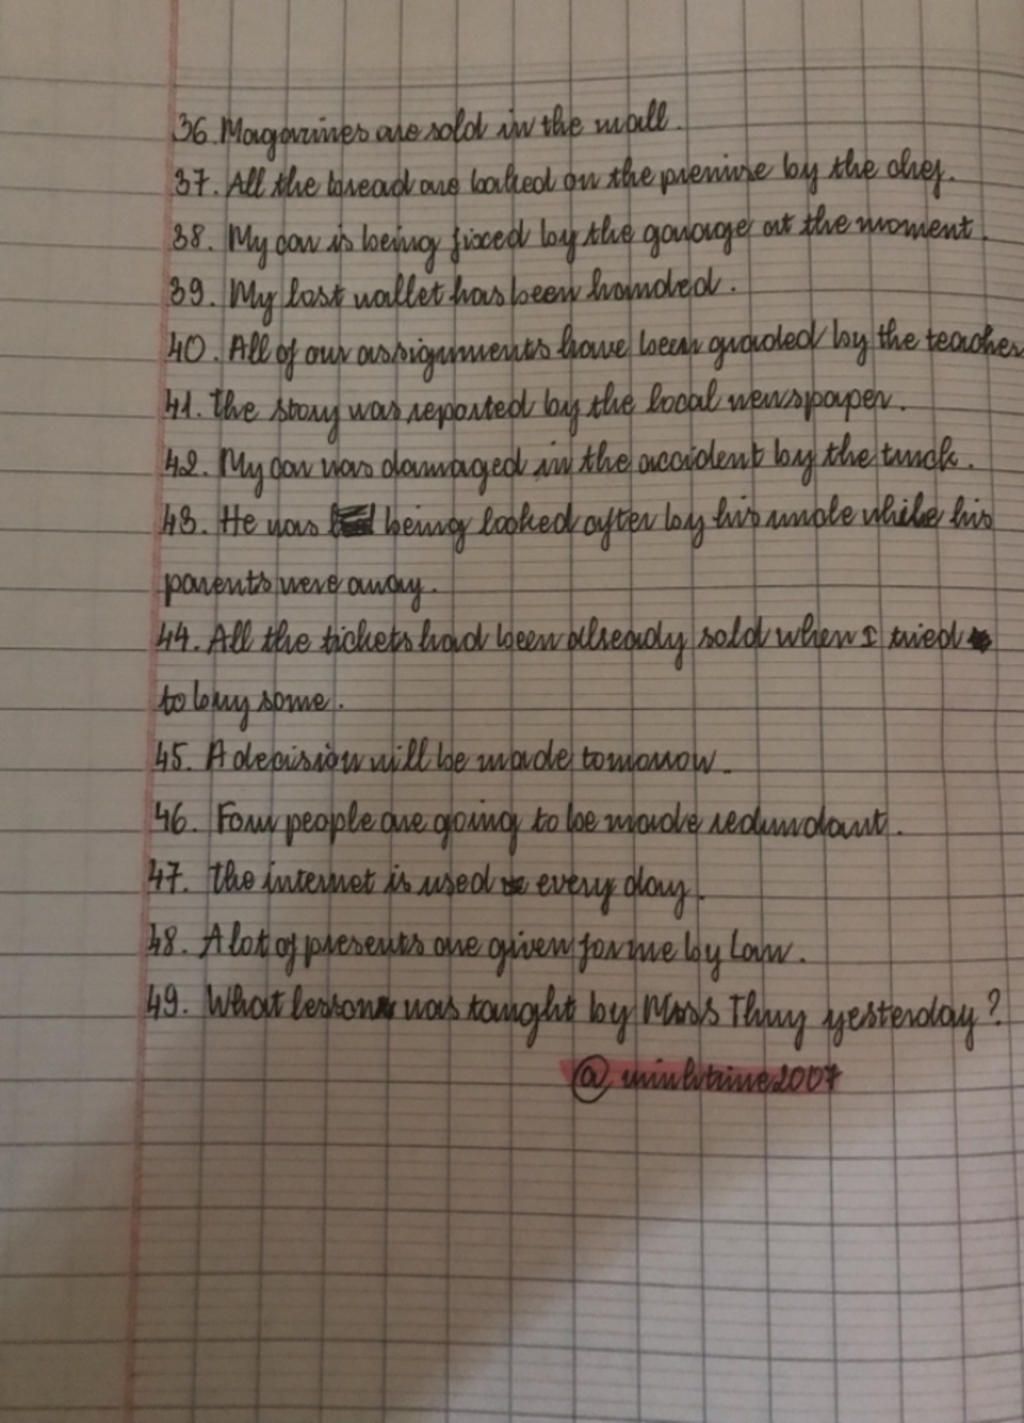 36. Magazines are sold in the mall.
37. All the bread are baked on the premise by the chef.
38. My car is being fixed by the garage at the moment.
39. My lost wallet has been handed.
40. All of our assignments have been graded by the teacher
41. The story was reported by the local newspaper.
42. My car was damaged in the accident by the truck.
43. He was being looked after by his uncle while his
parents were away.
44. All the tickets had been already sold when I tried
to buy some.
45. A decision will be made tomorrow.
46. Four people are going to be made redundant.
47. The internet is used every day.
48. A lot of presents are given for me by Lan.
49. What lesson was taught by Miss Thuy yesterday?